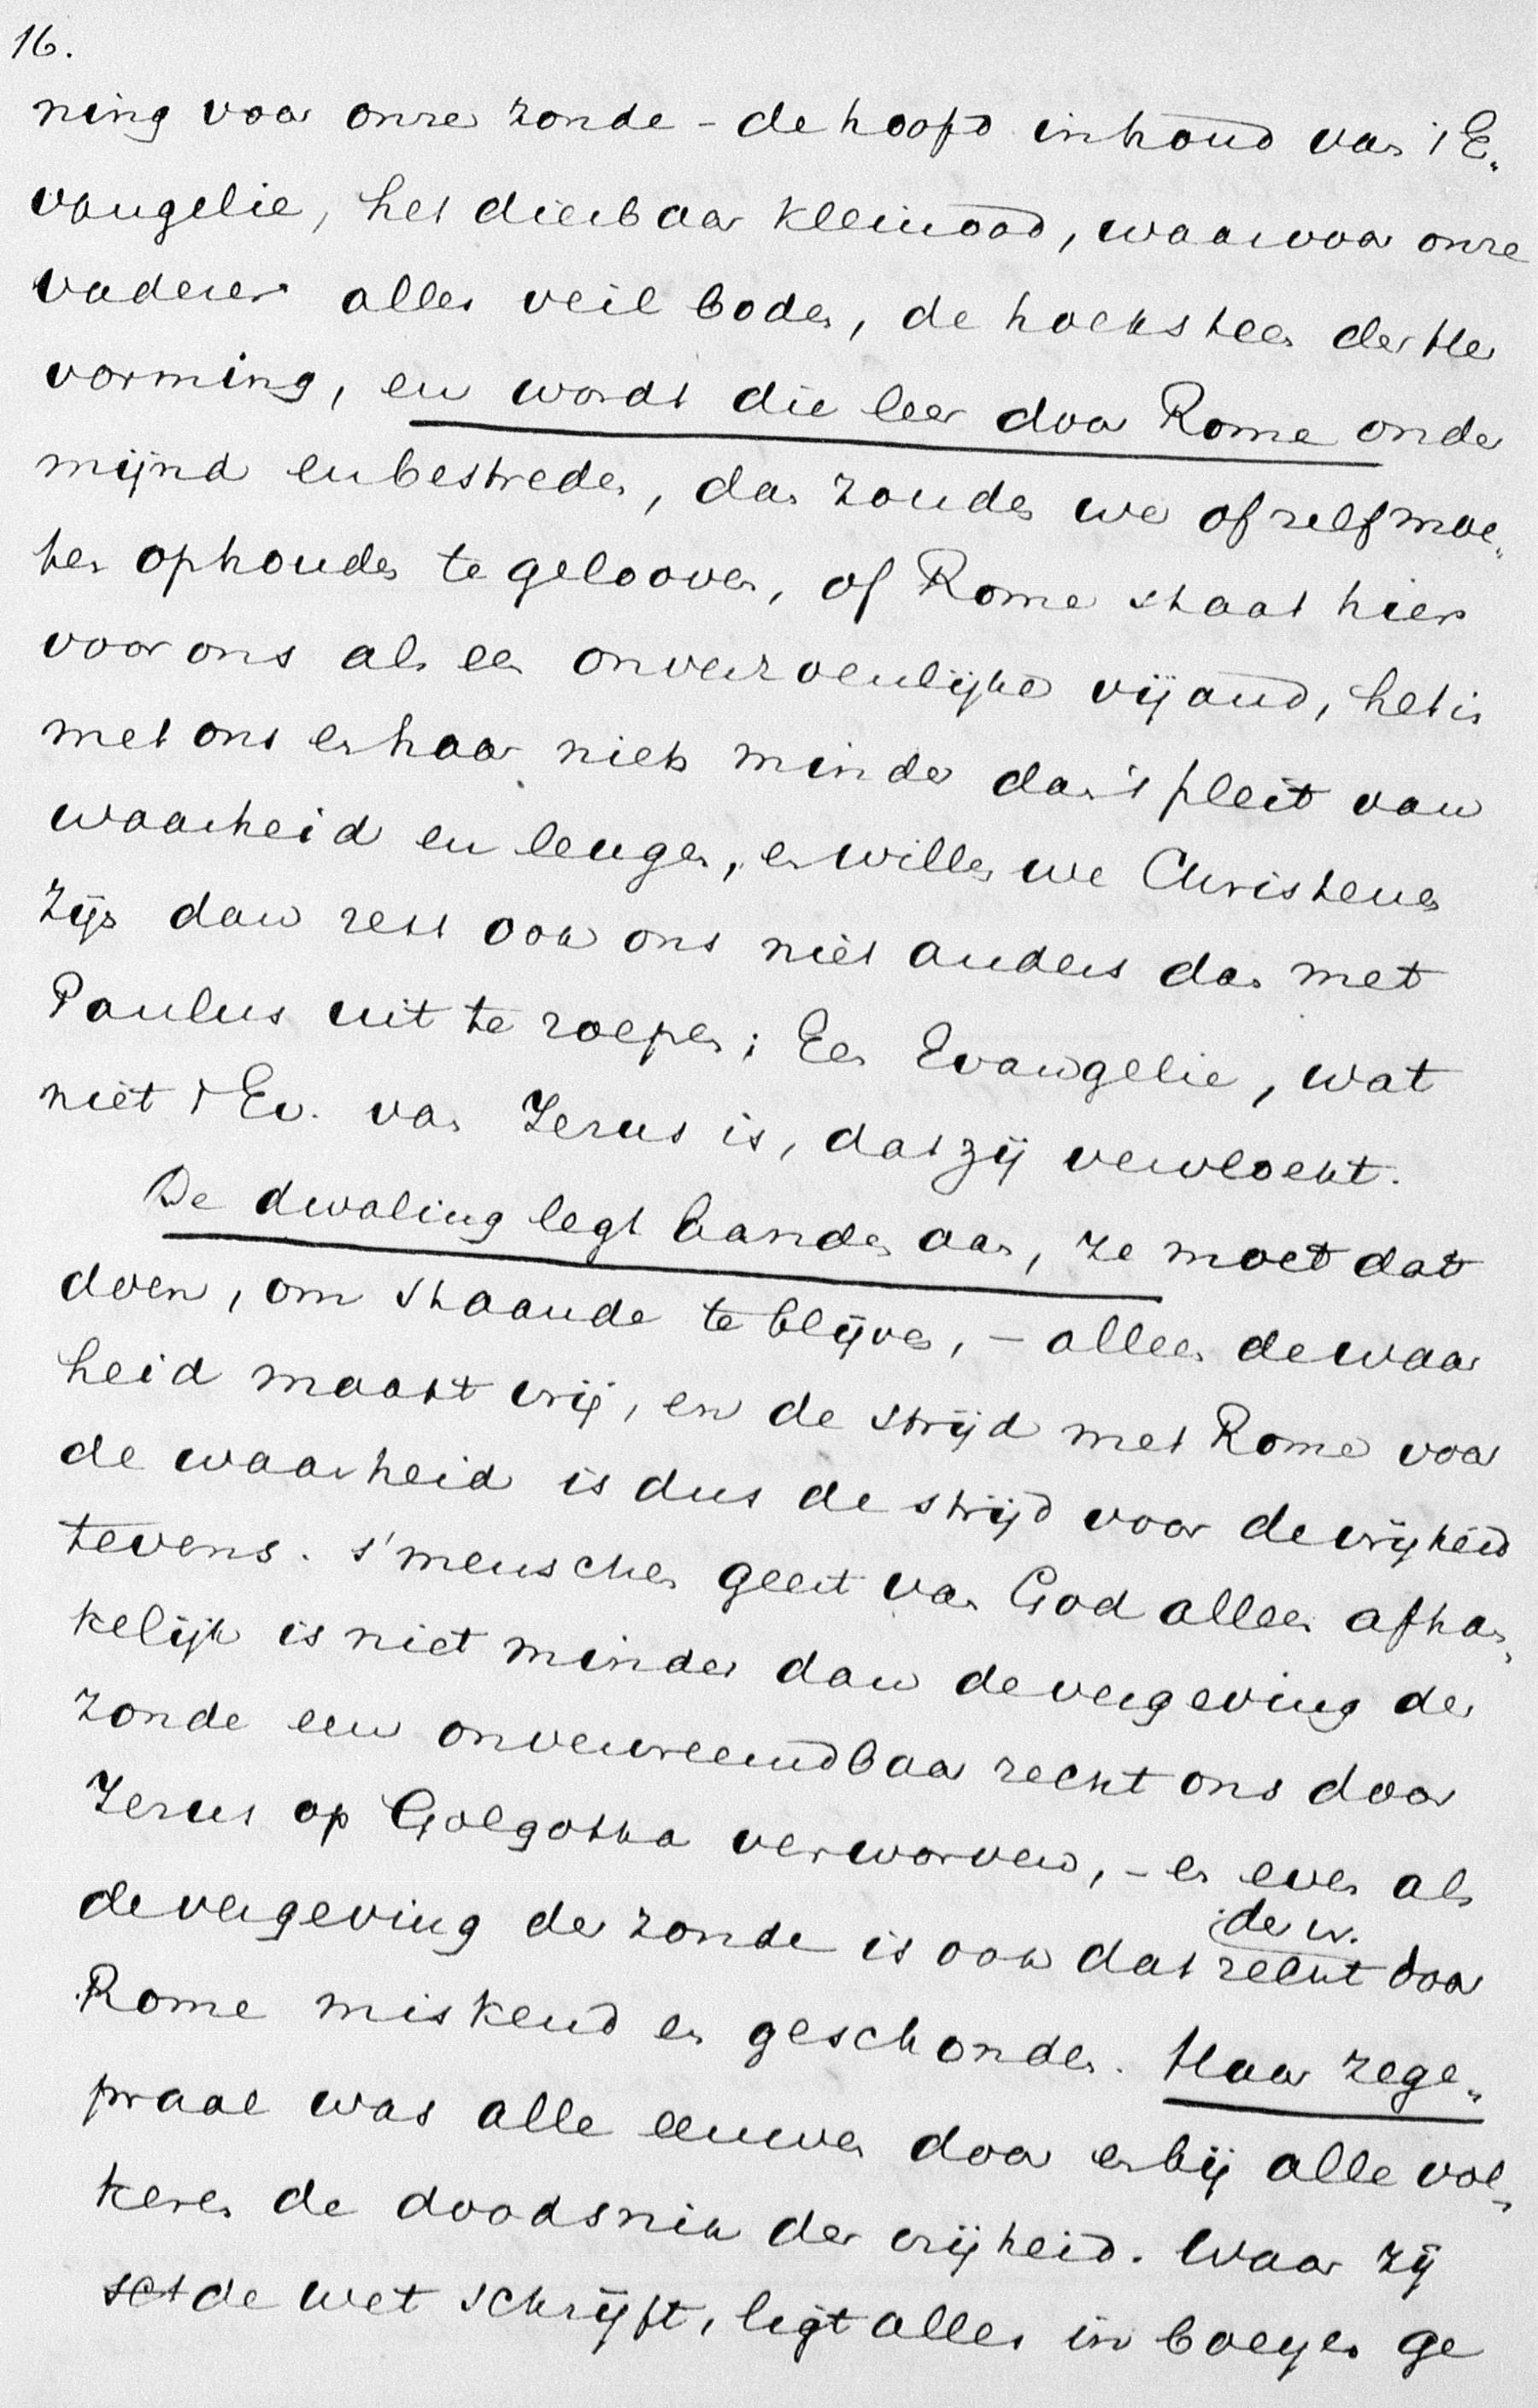 16.
ning voor onze zonde - de hoofd inhoud van 't E„
vangelie, het dierbaar kleinood, waarvoor onze
vaderen alles veil boden, de hoeksteen der Her
vorming, en wordt die leer door Rome onder
mijnd en bestreden, dan zouden we of zelf moe„
ten ophouden te gelooven, of Rome staat hier
voor ons als een onverzoenlijke vijand, het is
met ons en haar niets minder dan 't pleit van
waarheid en leugen, en willen we Christenen
zijn dan rest ook ons niet anders dan met
Paulus uit te roepen; Een Evangelie, wat
niet 't Ev. van Jezus is, dat zij vervloekt.
De dwaling legt banden aan, ze moet dat
doen, om staande te blijven, - alleen de waar
heid maakt vrij, en de strijd met Rome voor
de waarheid is dus de strijd voor de vrijheid
tevens. s'menschen geest van God alleen afhan„
kelijk is niet minder dan de vergeving der
zonde een onvervreemdbaar recht ons door
Jezus op Golgotha verworven, - en even als
de vergeving der zonde is ook dat recht door
der v.
Rome miskend en geschonden. Haar zege„
praal was alle eeuwen door en bij alle vol„
keren de doodsnik der vrijheid. Waar zij
de wet schrijft, ligt alles in boeyen ge